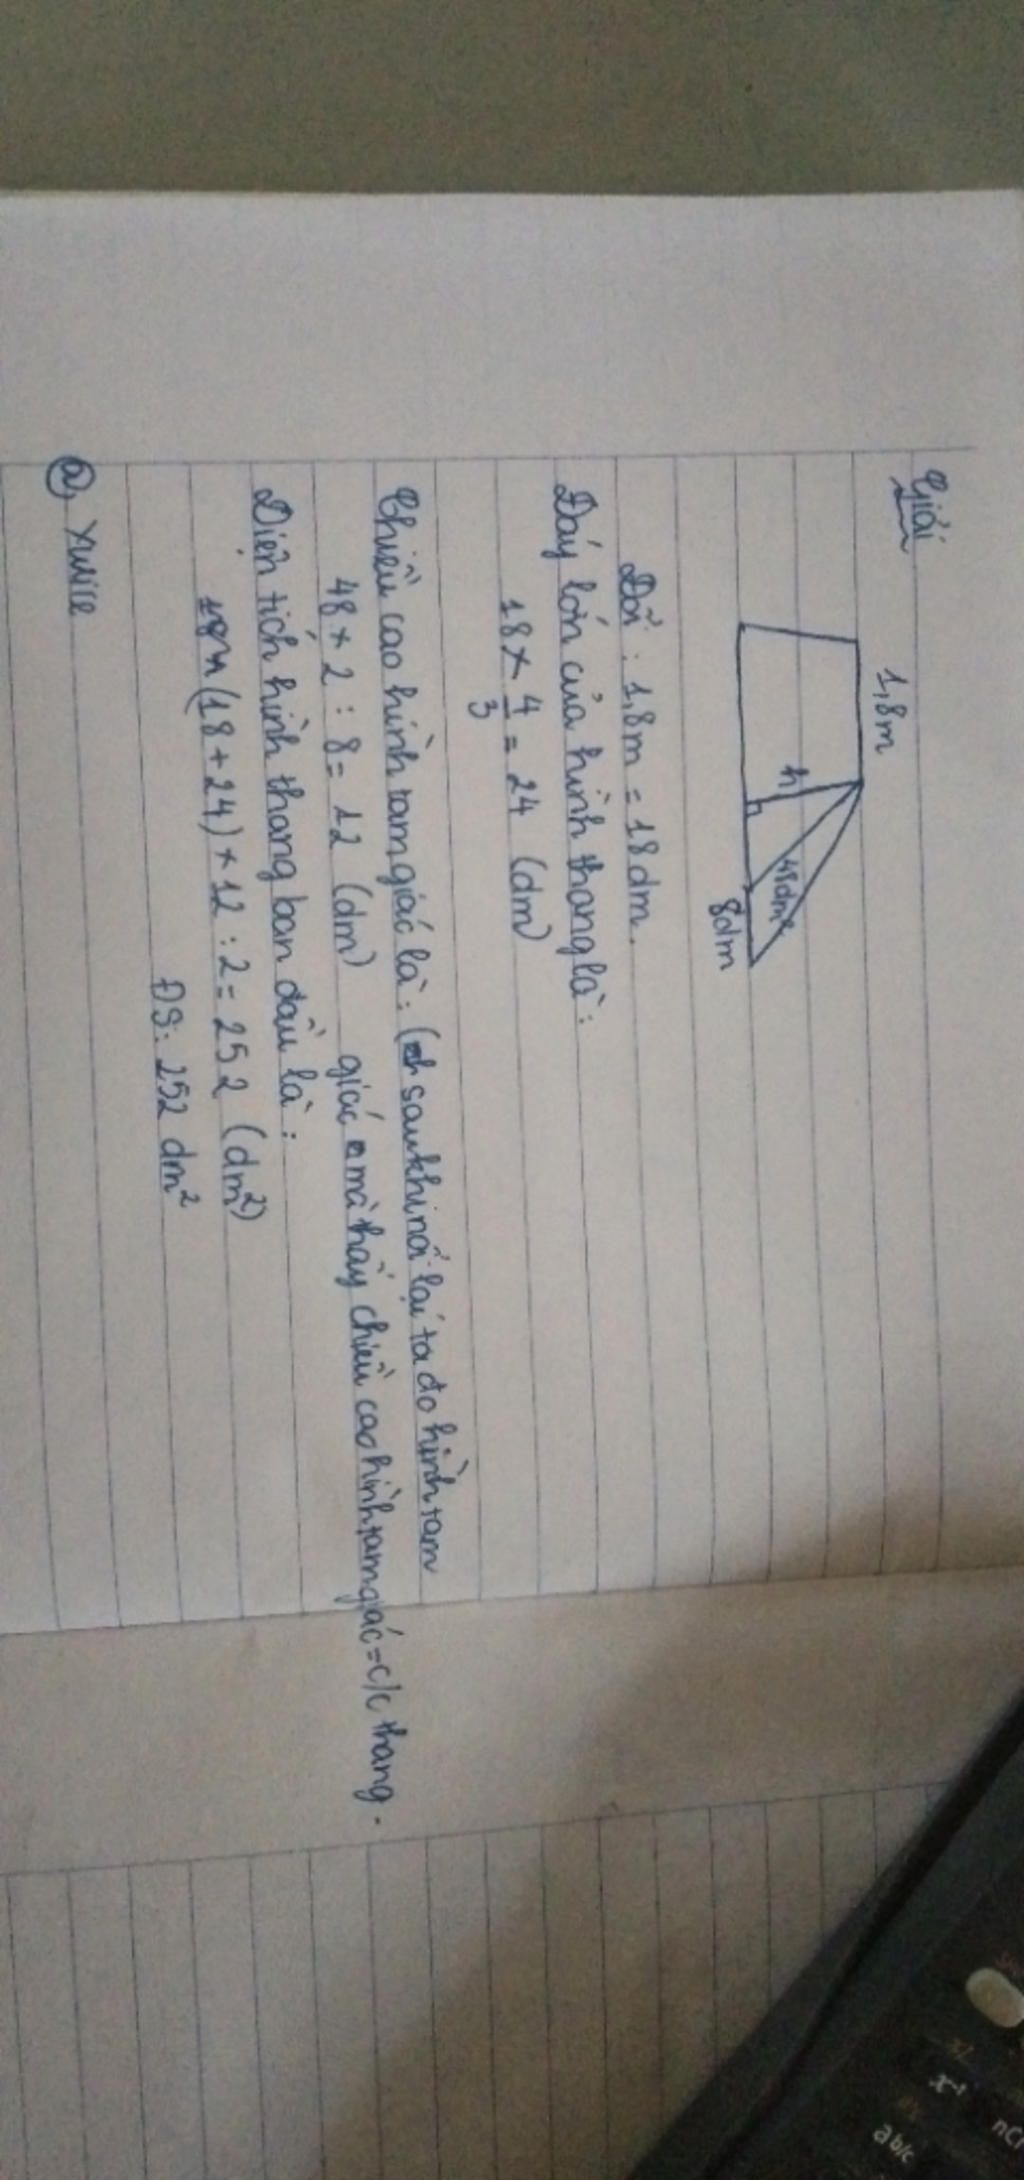 Giải
1,8m
h
48dm²
8dm
Đổi : 1,8m = 18dm.
Đáy lớn của hình thang là :
18 × 4/3 = 24 (dm)
Chiều cao hình tam giác là : ( sau khi nối lại ta đo hình tam
48 × 2 : 8 = 12 (dm) giác mà thấy chiều cao hình tam giác = c/c thang .
Diện tích hình thang ban đầu là :
(18 + 24) × 12 : 2 = 252 (dm²)
ĐS : 252 dm²
@ xwice
x⁻¹
nCr
ab/c